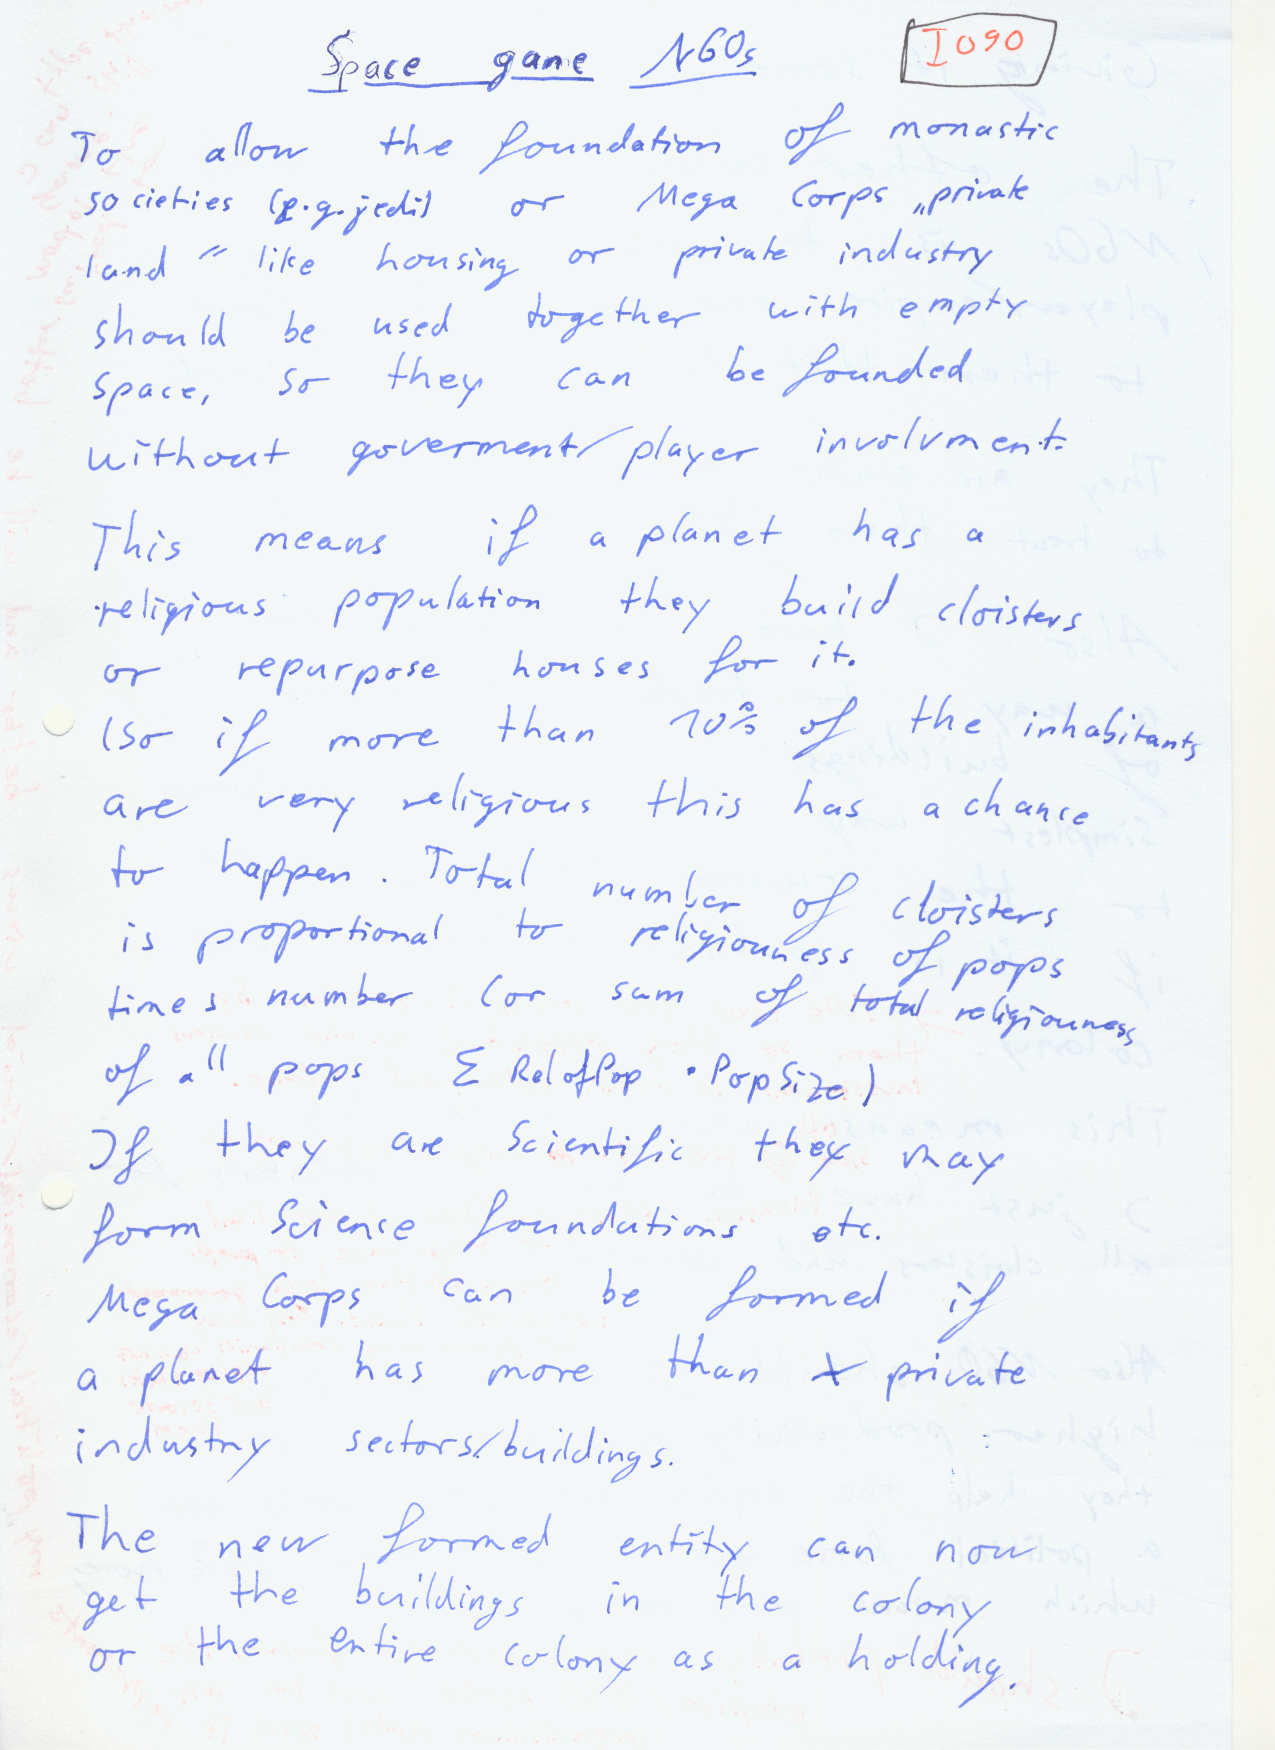 Space game NGOs
I090
To allow the foundation of monastic
societies (e.g. jedi) or Mega Corps „private
land" like housing or private industry
should be used together with empty
space, so they can be founded
without goverment/player involvment.
This means if a planet has a
religious population they build cloisters
or repurpose houses for it.
(So if more than 10% of the inhabitants
are very religious this has a chance
to happen. Total number of cloisters
is proportional to religiouness of pops
times number (or sum of total religiouness
of all pops Σ RelofPop · PopSize)
If they are Scientific they may
form Science foundations etc.
Mega Corps can be formed if
a planet has more than X private
industry sectors/buildings.
The new formed entity can now
get the buildings in the colony
or the entire colony as a holding.